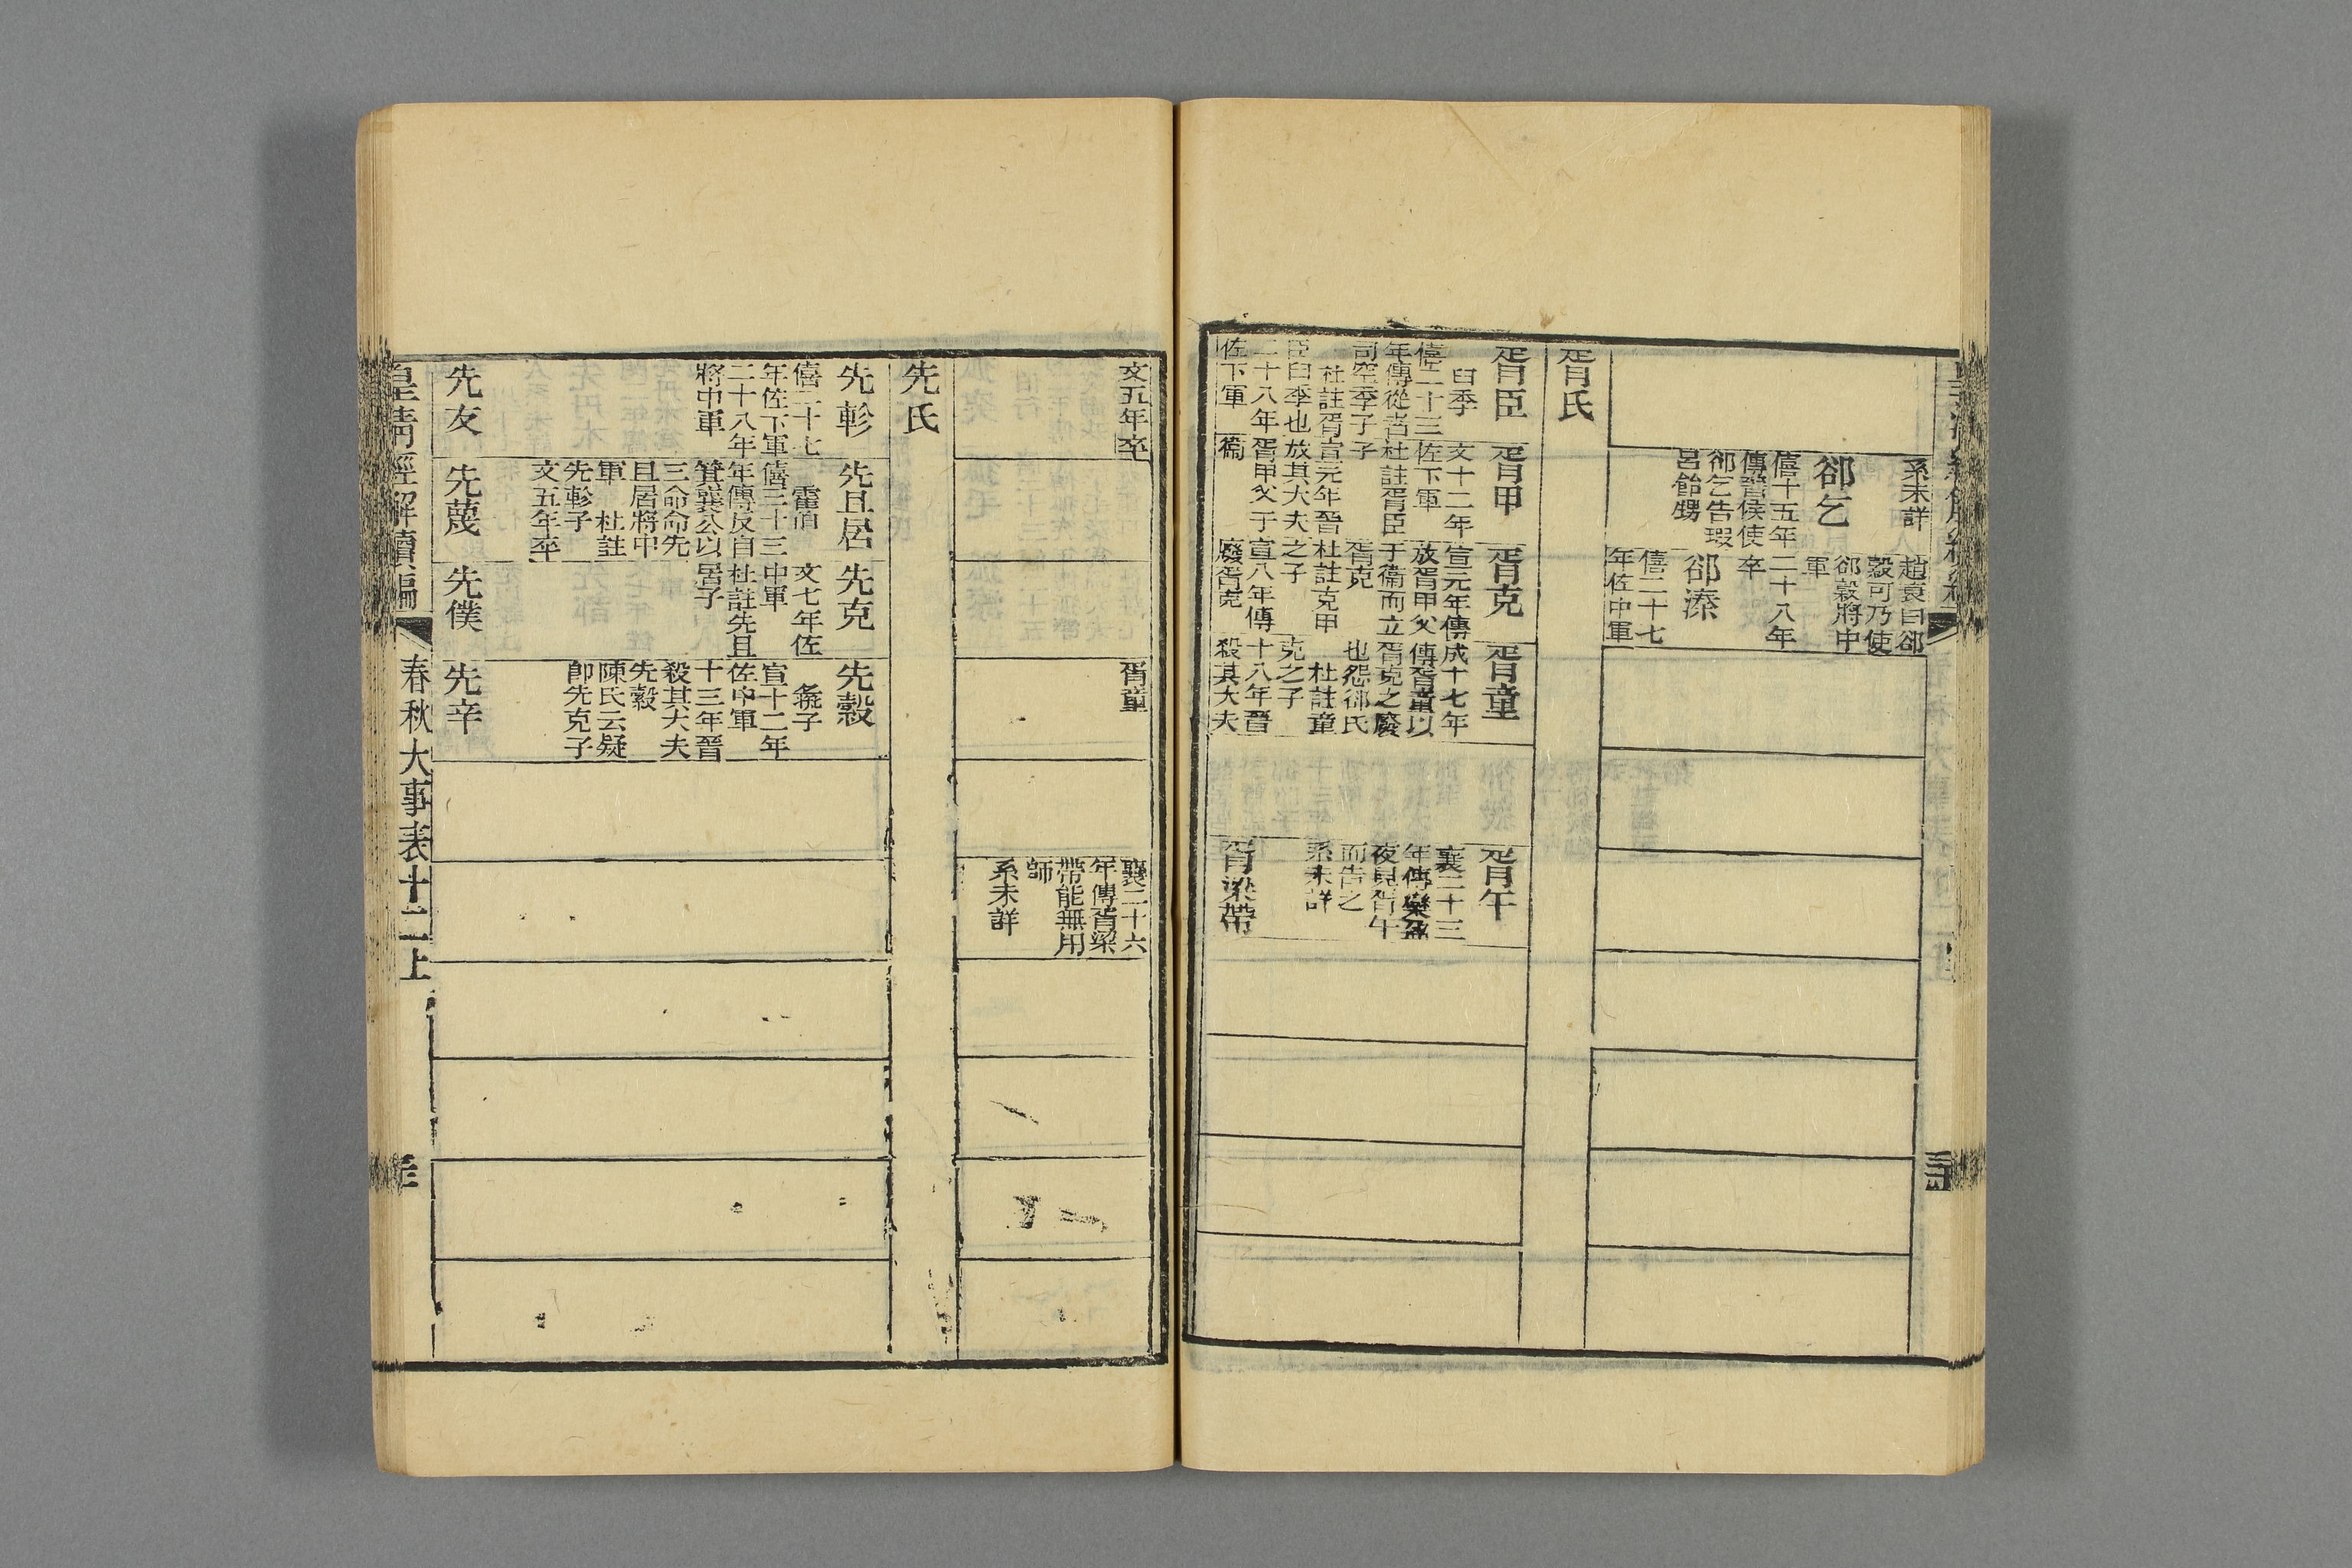 系未詳
郤乞
僖十五年
傳晉侯使
郤乞告瑕
呂飴甥
趙衰曰郤
縠可乃使
郤縠將中
軍
二十八年
卒
郤溱
僖二十七
年佐中軍
胥氏
胥臣
臼季
僖二十三
年傳從者
司空季子
杜註胥
臣臼季也
二十八年
佐下軍
胥甲
文十二年
佐下軍
杜註胥臣
子
宣元年晉
放其大夫
胥甲父于
衞
胥克
宣元年傳
放胥甲父
于衞而立
胥克
杜註克甲
之子
宣八年傳
廢胥克
胥童
成十七年
傳胥童以
胥克之廢
也怨郤氏
杜註童
克之子
十八年晉
殺其大夫
胥午
襄二十三
年傳欒盈
夜見胥午
而告之
系未詳
胥梁帶
文五年卒
胥童
襄二十六
年傳胥梁
帶能無用
師
系未詳
先氏
先軫
僖二十七
年佐下軍
二十八年
將中軍
先且居
霍伯
僖三十三
年傳反自
箕襄公以
三命命先
且居將中
軍 杜註
先軫子
文五年卒
先克
文七年佐
中軍
杜註先且
居子
先縠
彘子
宣十二年
佐中軍
十三年晉
殺其大夫
先縠
陳氏云疑
卽先克子
先友
先蔑
先僕
先辛
皇清經解續編
春秋大事表十二上